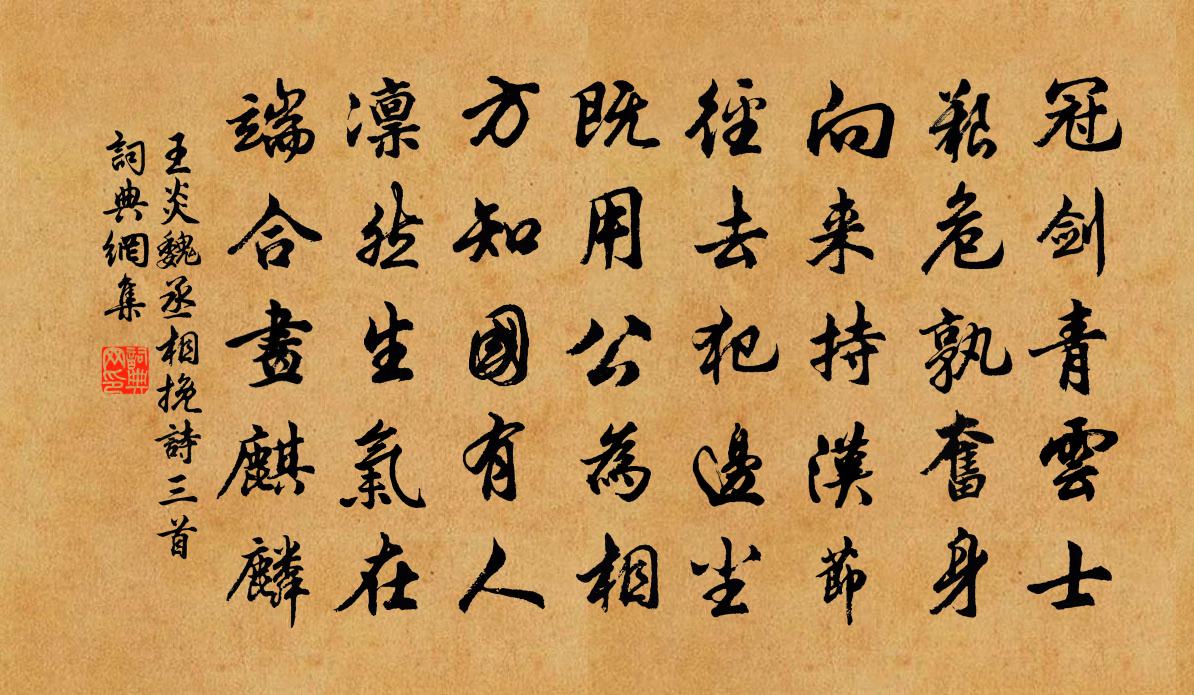 冠剑青雲士
艱危孰奮身
向来持漢節
徑去犯邊尘
既用公為相
方知國有人
凛然生氣在
端合畫麒麟
王炎魏丞相挽詩三首
詞典網集
詞典網印